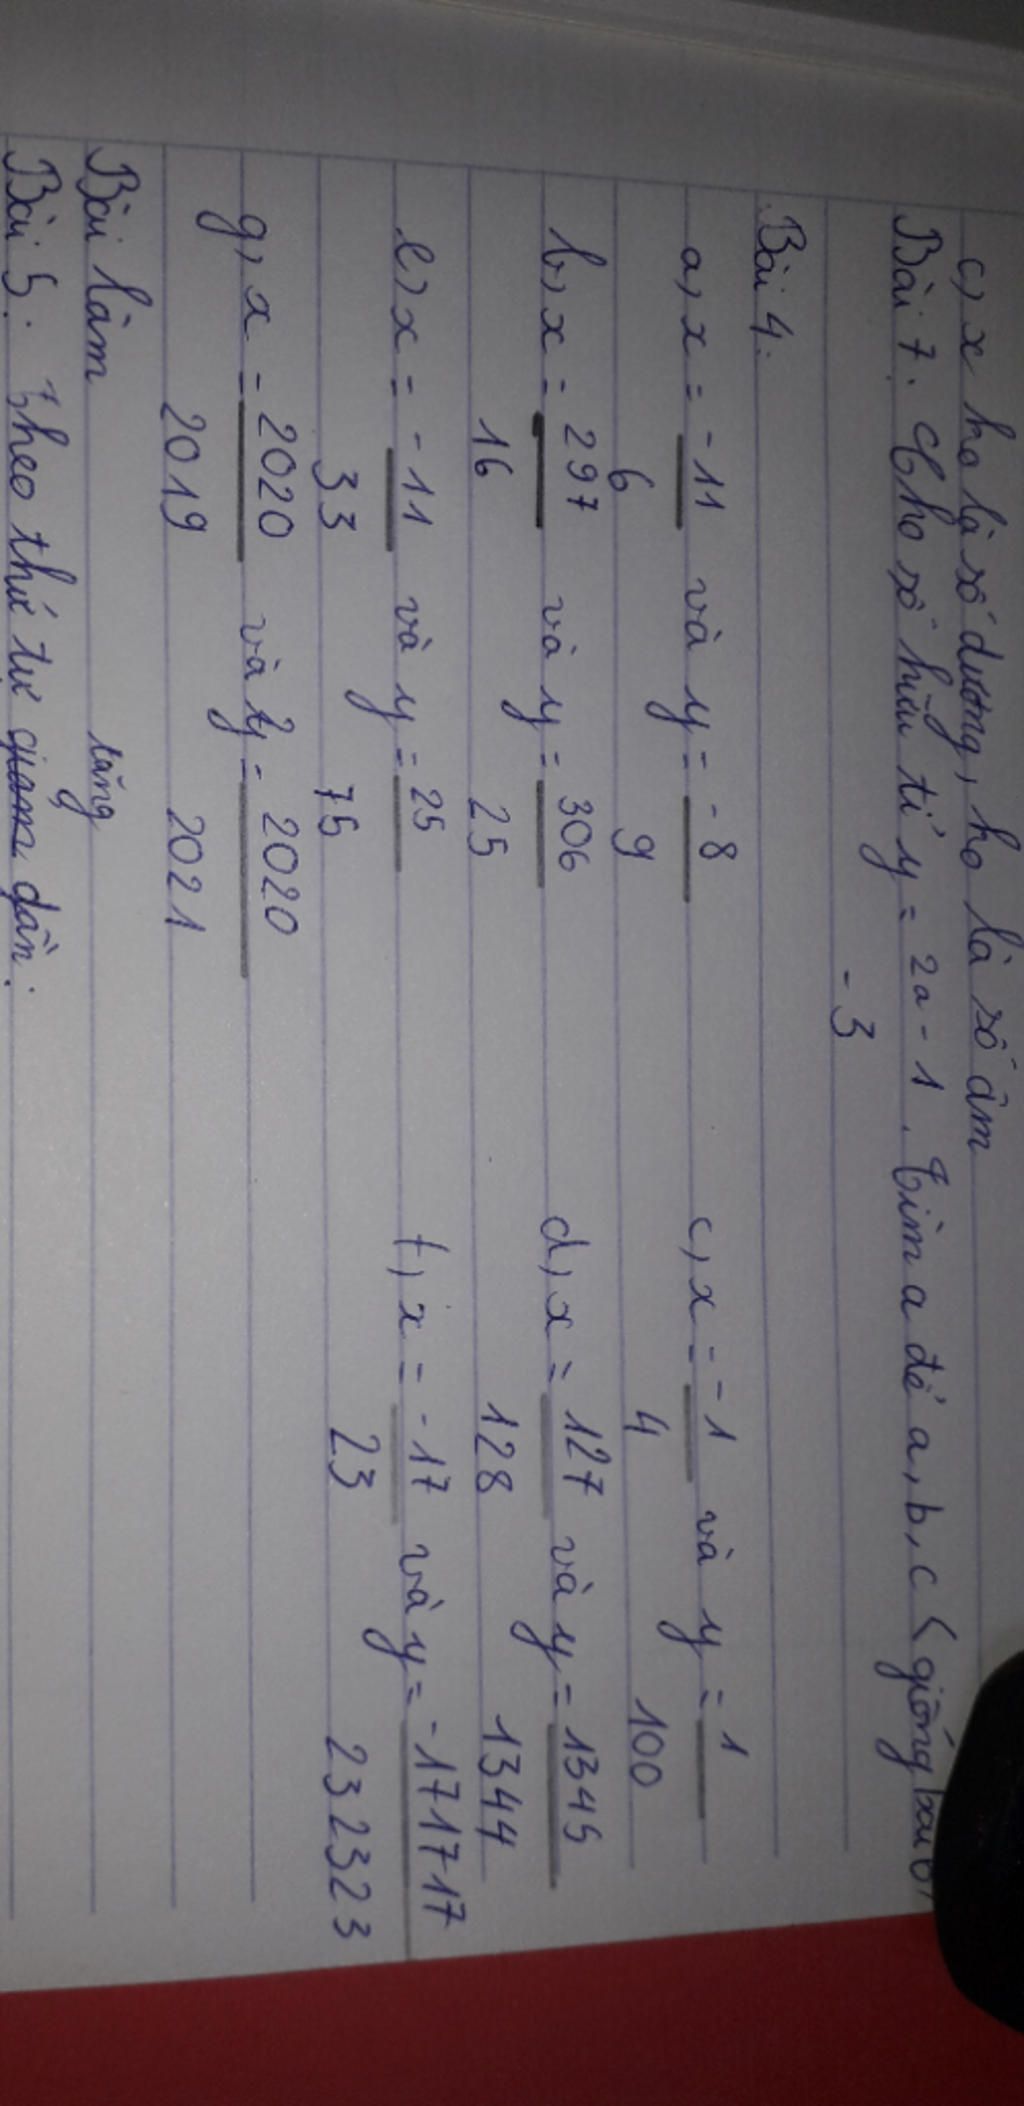 c, x ko là số dương, ko là số âm
Bài 7. Cho số hữu tỉ y = 2a - 1 . Tìm a để a, b, c (giống bài 6)
- 3
Bài 4.
a, x = -11 và y = -8 c, x = -1 và y = 1
6 9 4 100
b, x = 297 và y = 306 d, x = 127 và y = 1345
16 25 128 1344
e, x = -11 và y = 25 f, x = -17 và y = -171717
33 75 23 232323
g, x = 2020 và y = 2020
2019 2021
Bài làm
tăng
Bài 5. Theo thứ tự giảm dần: